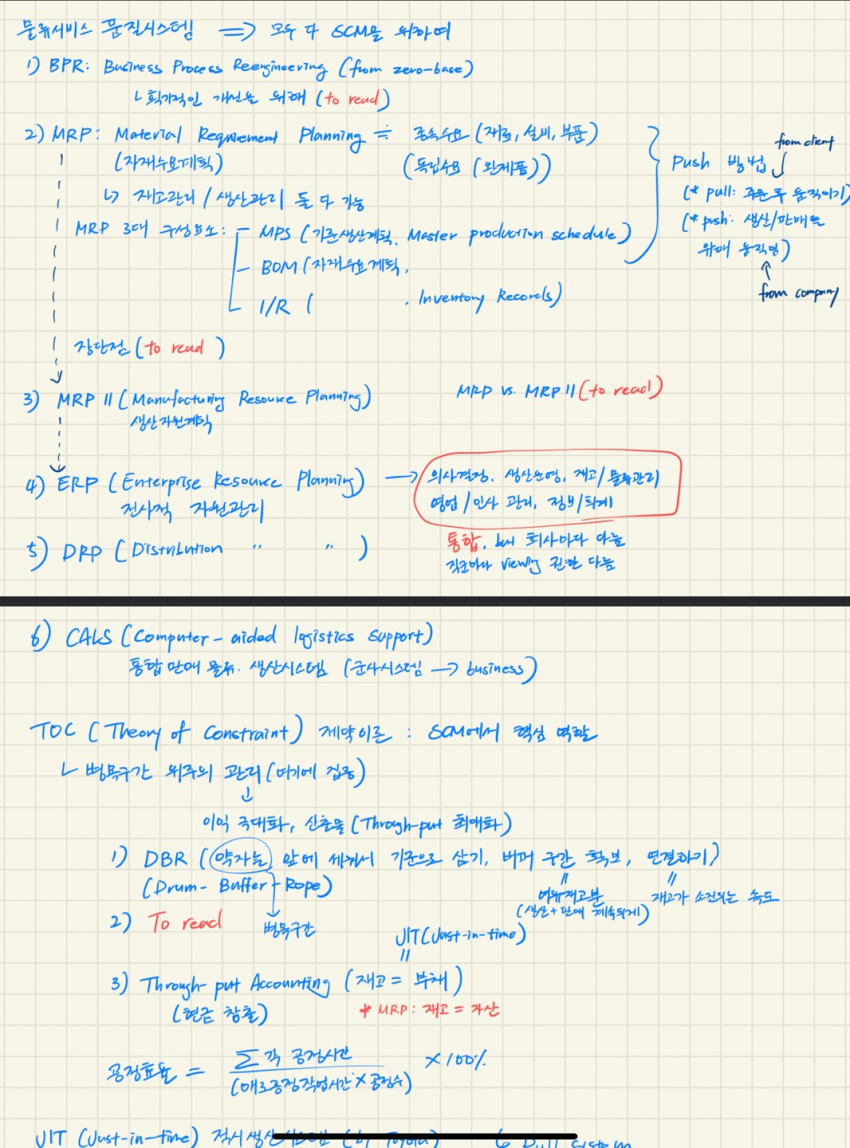 물류서비스 품질시스템 ⇒ 모두 다 SCM을 위하여
1) BPR: Business Process Reengineering (from zero-base)
↳ 획기적인 개선을 위해 (to read)
2) MRP: Material Requirement Planning ≒ 종속수요 (재료, 설비, 부품)
(자재수요계획) (독립수요 (완제품))
↳ 재고관리 / 생산관리 둘 다 가능
Push 방법 from client
(* pull: 주문 후 움직이기)
(* push: 생산/판매를
위해 움직임)
from company
MRP 3대 구성요소: MPS (기준생산계획, Master production schedule)
BOM (자재수요계획,
I/R ( , Inventory Records)
장단점 (to read)
3) MRP II (Manufacturing Resource Planning) MRP vs. MRP II (to read)
생산자원계획
4) ERP (Enterprise Resource Planning) → 의사결정, 생산운영, 재고/물류관리
전사적 자원관리 영업/인사 관리, 정보/회계
5) DRP (Distribution " " ) 통합, but 회사마다 다늘
직군마다 viewing 권한 다늘
6) CALS (Computer-aided logistics support)
통합 판매 물류. 생산시스템 (군사시스템 → business)
TOC (Theory of Constraint) 제약이론 : SCM에서 핵심 역할
↳ 병목구간 위주의 관리 (여기에 집중)
↓
이익 극대화, 산출물 (Through-put 최대화)
1) DBR (약자는 앞에 세워서 기준으로 삼기, 버퍼 구간 확보, 연결하기)
(Drum-Buffer-Rope) 여유재고분 재고가 소진되는 속도
(생산+판매 계속되게)
2) To read 병목구간
JIT (Just-in-time)
3) Through-put Accounting (재고 = 부채)
(현금 창출) * MRP: 재고 = 자산
공정효율 = Σ 각 공정시간 / (애로공정작업시간 × 공정수) × 100%
JIT (Just-in-time) 적시생산시스템 (by Toyota) Pull system